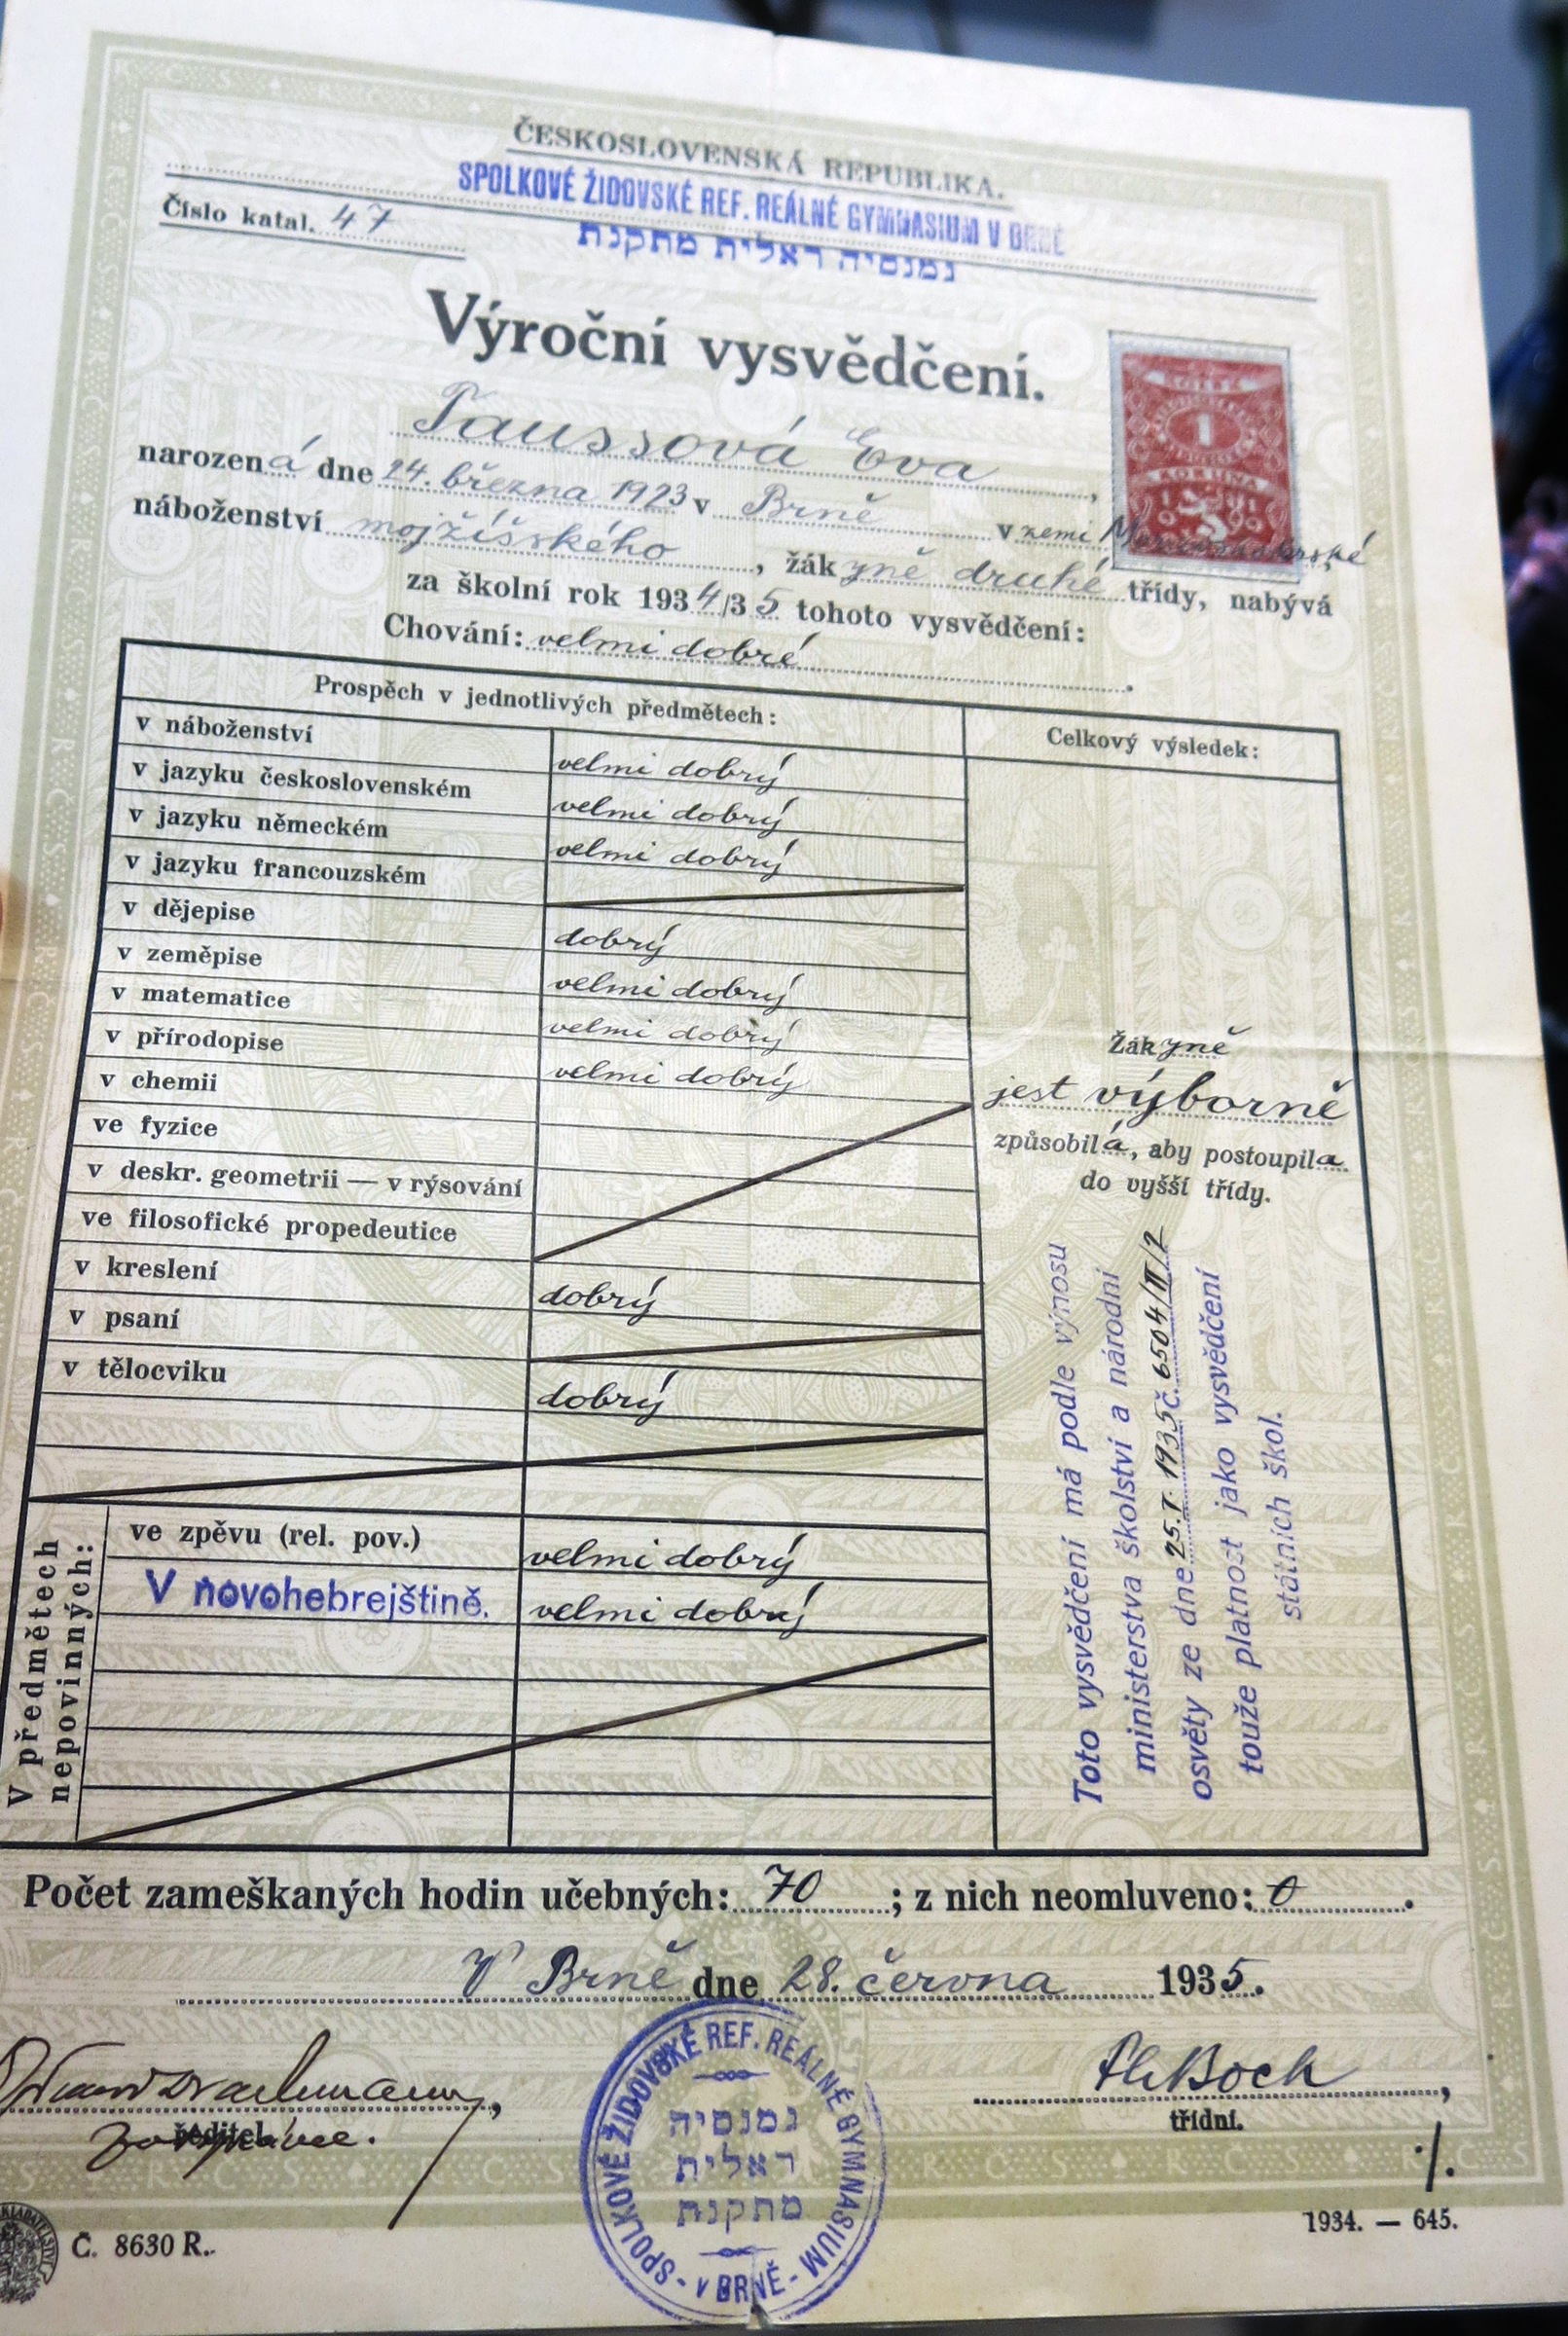 ČESKOSLOVENSKÁ REPUBLIKA.
SPOLKOVÉ ŽIDOVSKÉ REF. REÁLNÉ GYMNASIUM V BRNĚ
Číslo katal. 47
גמנסיה ראלית מתקנת
Výroční vysvědčení.
Taussová Eva,
narozená dne 24. března 1923 v Brně v zemi
náboženství mojžíšského, žákyně druhé třídy, nabývá
za školní rok 1934/35 tohoto vysvědčení:
Chování: velmi dobré.
Prospěch v jednotlivých předmětech:
Celkový výsledek:
v náboženství velmi dobrý
v jazyku československém velmi dobrý
v jazyku německém velmi dobrý
v jazyku francouzském
v dějepise dobrý
v zeměpise velmi dobrý
v matematice velmi dobrý
v přírodopise velmi dobrý
v chemii
ve fyzice
v deskr. geometrii — v rýsování
ve filosofické propedeutice
v kreslení dobrý
v psaní
v tělocviku dobrý
V předmětech
nepovinných:
ve zpěvu (rel. pov.) velmi dobrý
V novohebrejštině. velmi dobrý
Žákyně
jest výborně
způsobilá, aby postoupila
do vyšší třídy.
Toto vysvědčení má podle výnosu
ministerstva školství a národní
osvěty ze dne 25.I.1935 č. 6504/II/2
touže platnost jako vysvědčení
státních škol.
Počet zameškaných hodin učebných: 70; z nich neomluveno: 0.
V Brně dne 28. června 1935.
ředitel.
třídní.
SPOLKOVÉ ŽIDOVSKÉ REF. REÁLNÉ GYMNASIUM - V BRNĚ -
גמנסיה
ראלית
מתקנת
./.
Č. 8630 R.
1934. — 645.